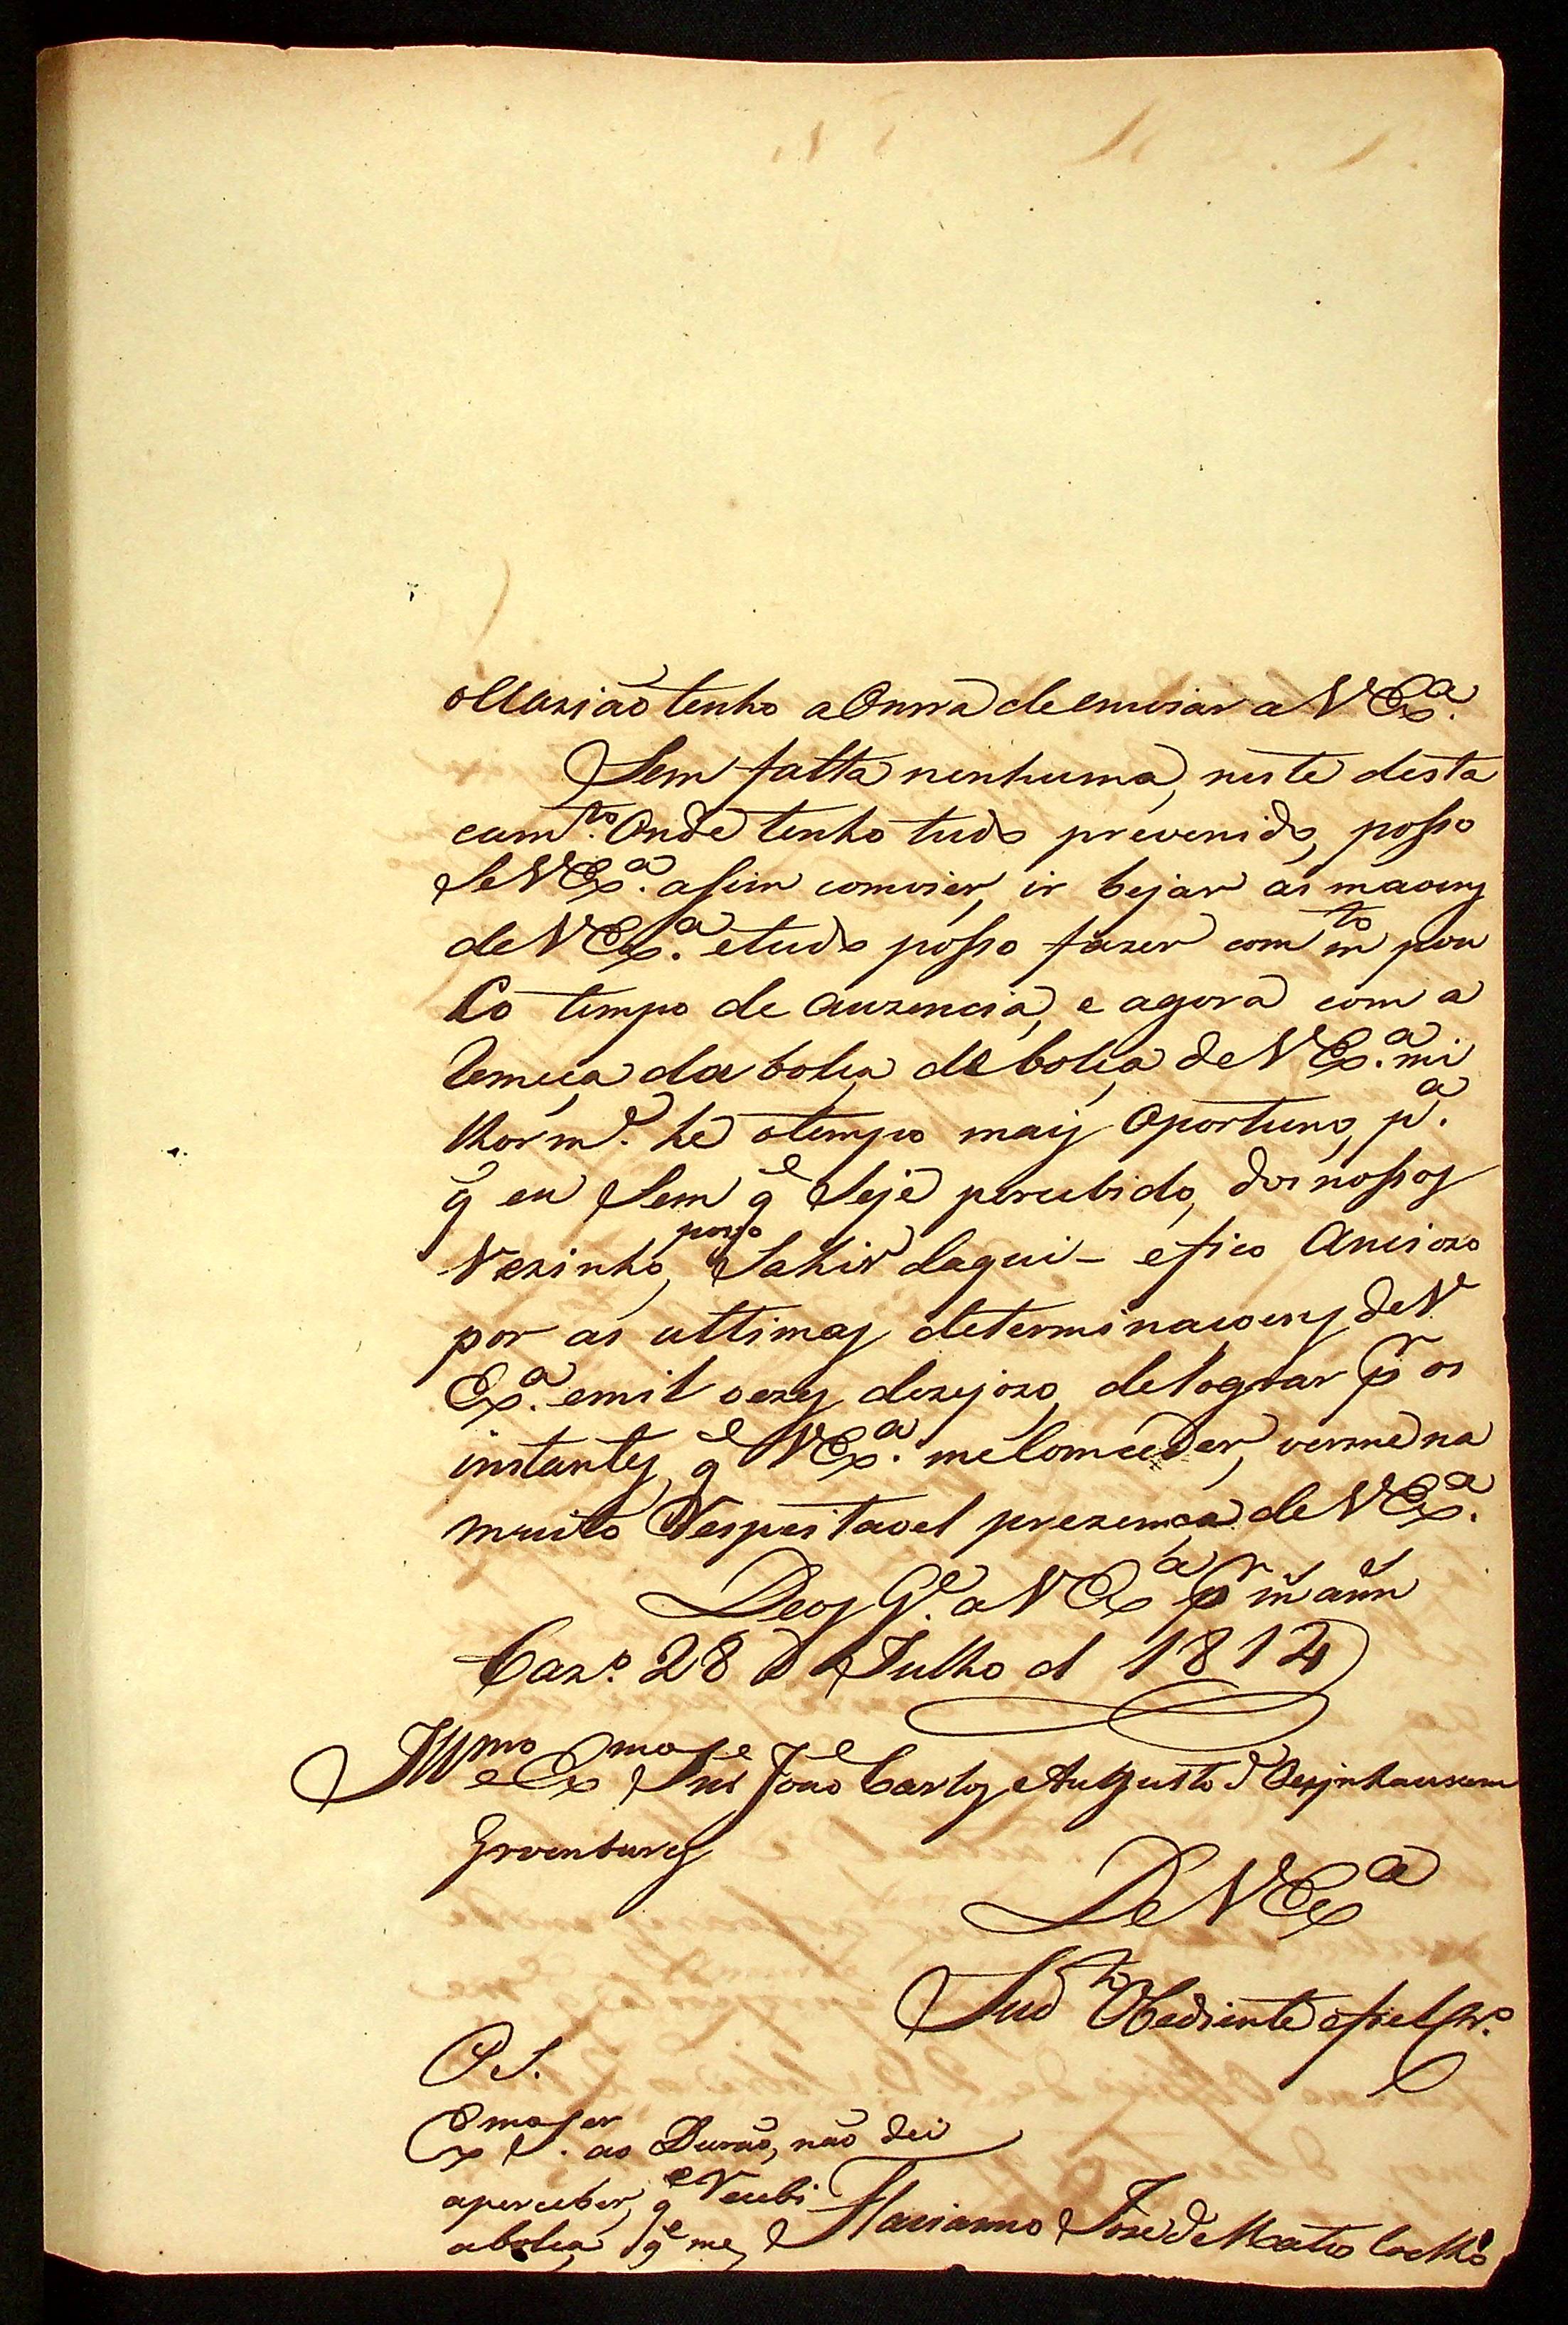 occazião tenho a Onrra de enviar a V Exª.
Sem falta nenhuma, neste desta
camto. Onde tenho tudo prevenido, posso
Se V Exª. asim comvier, ir bejar as maoens
de V Exª. e tudo posso fazer com mto pou
Co tempo de auzencia, e agora com a
Remeça da bolça de V Exª. mi
lhorme. he o tempo mais Oportuno, pª.
qe eu Sem qe Seje percebido, dos nossos
Vezinhos, posso Sahir daqui - e fico Anciozo
por as ultimas determinacoens de V
Exª. e mil vezes dezejozo, de lograr pr os
instantes, qe V Exª. me Comceder, verme na
muito Respeitavel prezença de V Exª.
Deos Ge. a V Exª pr ms anns
Cazo. 28 d Julho d 1812
Illmo e Exmo Snr João Carlos Augusto d' Oeynhausem
Grvenburg
De V Exª
Sudto Obediente e fiel Cro.
P S.
Exmo Ser. ao Durão, não dei
aperceber, qe Recebi
a bolça qe me
Marianno Jose de Mattos Coelho